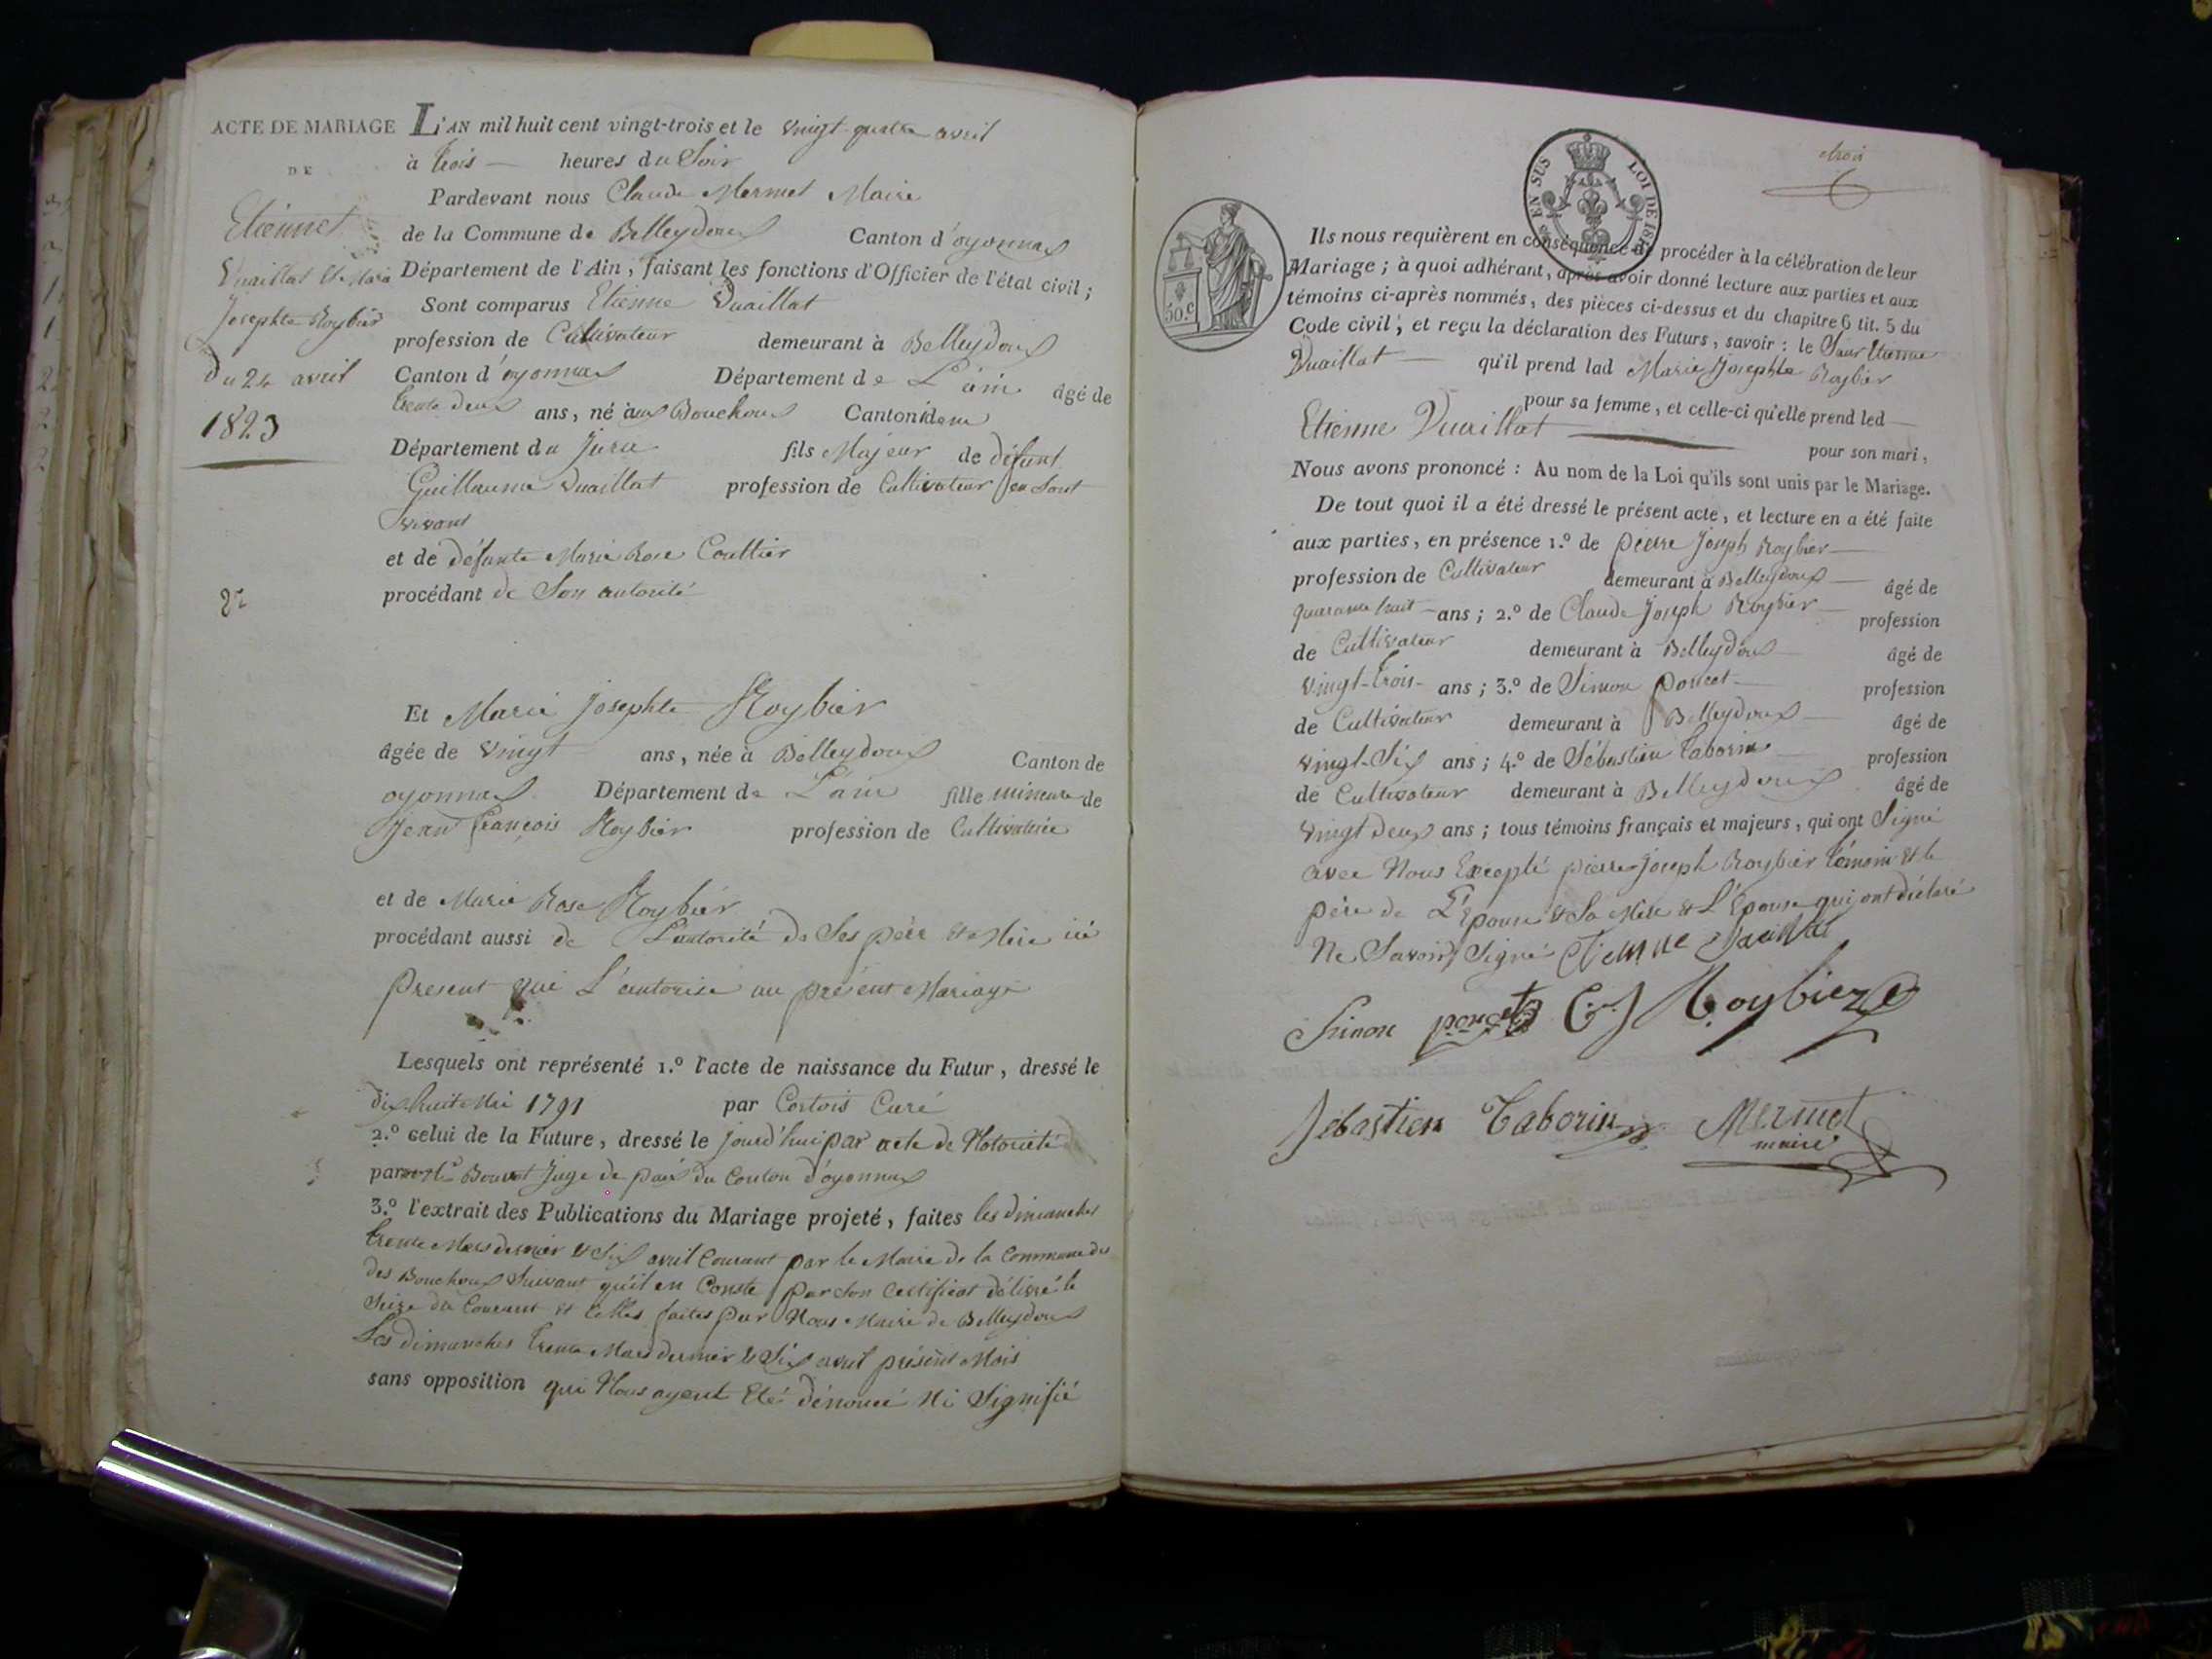 ACTE DE MARIAGE
DE
Etienne
Vuaillat et Marie
Josephte Roybier
du 24 avril
1823
L'AN mil huit cent vingt-trois et le vingt-quatre avril
à trois heures du Soir
Pardevant nous Claude Mermet Maire
de la Commune de Belleydoux Canton d'oyonnax
Département de l'Ain, faisant les fonctions d'Officier de l'état civil;
Sont comparus Etienne Vuaillat
profession de Cultivateur demeurant à Belleydoux
Canton d'oyonnax Département de L'ain âgé de
trente deux ans, né aux Bouchoux Canton idem
Département du Jura fils Majeur de défunt
Guillaume Vuaillat profession de Cultivateur en Son
vivant
et de défunte Marie Rose Coultier
procédant de Son autorité
Et Marie Josephte Roybier
âgée de vingt ans, née à Belleydoux Canton de
oyonnax Département de L'ain fille mineure de
Jean François Roybier profession de
et de Marie Rose Roybier
procédant aussi de L'autorité de Ses père et Mère ici
present qui L'autorise au présent Mariage
Lesquels ont représenté 1.º l'acte de naissance du Futur, dressé le
dix huit Mai 1791 par Curé
2.º celui de la Future, dressé le jourd'hui par acte de Notorieté
par Juge de paix du Canton d'oyonnax
3.º l'extrait des Publications du Mariage projeté, faites les dimanches
trente Mars dernier et Six avril Courant par le Maire de la Commune des
des Bouchoux Suivant qu'il en Conste par Son Certificat délivré le
Seize du Courant et Celles faites par Nous Maire de Belleydoux
Les dimanches trente Mars dernier et Six avril présent Mois
sans opposition qui Nous ayent Eté dénoncé Ni Signifié
trois
EN SUS LOI DE
50.C
Ils nous requièrent en conséquence de procéder à la célébration de leur
Mariage; à quoi adhérant, après avoir donné lecture aux parties et aux
témoins ci-après nommés, des pièces ci-dessus et du chapitre 6 tit. 5 du
Code civil, et reçu la déclaration des Futurs, savoir: le Sieur Etienne
Vuaillat qu'il prend lad Marie Josephte Roybier
pour sa femme, et celle-ci qu'elle prend led
Etienne Vuaillat pour son mari,
Nous avons prononcé: Au nom de la Loi qu'ils sont unis par le Mariage.
De tout quoi il a été dressé le présent acte, et lecture en a été faite
aux parties, en présence 1.º de pierre Joseph Roybier
profession de Cultivateur demeurant à Belleydoux âgé de
quarante huit ans; 2.º de Claude Joseph Roybier profession
de Cultivateur demeurant à Belleydoux âgé de
vingt-trois ans; 3.º de Simon poncet profession
de Cultivateur demeurant à Belleydoux âgé de
vingt-Six ans; 4.º de Sébastien Taborin profession
de Cultivateur demeurant à Belleydoux âgé de
vingt deux ans; tous témoins français et majeurs, qui ont Signé
avec Nous Excepté pierre Joseph Roybier témoin et le
père de L'Epouse et Sa Mère et L'Epouse qui ont déclaré
Ne Savoir Signé Etienne Vuaillat
Simon poncet C J Roybier
Sébastien Taborin Mermet
maire